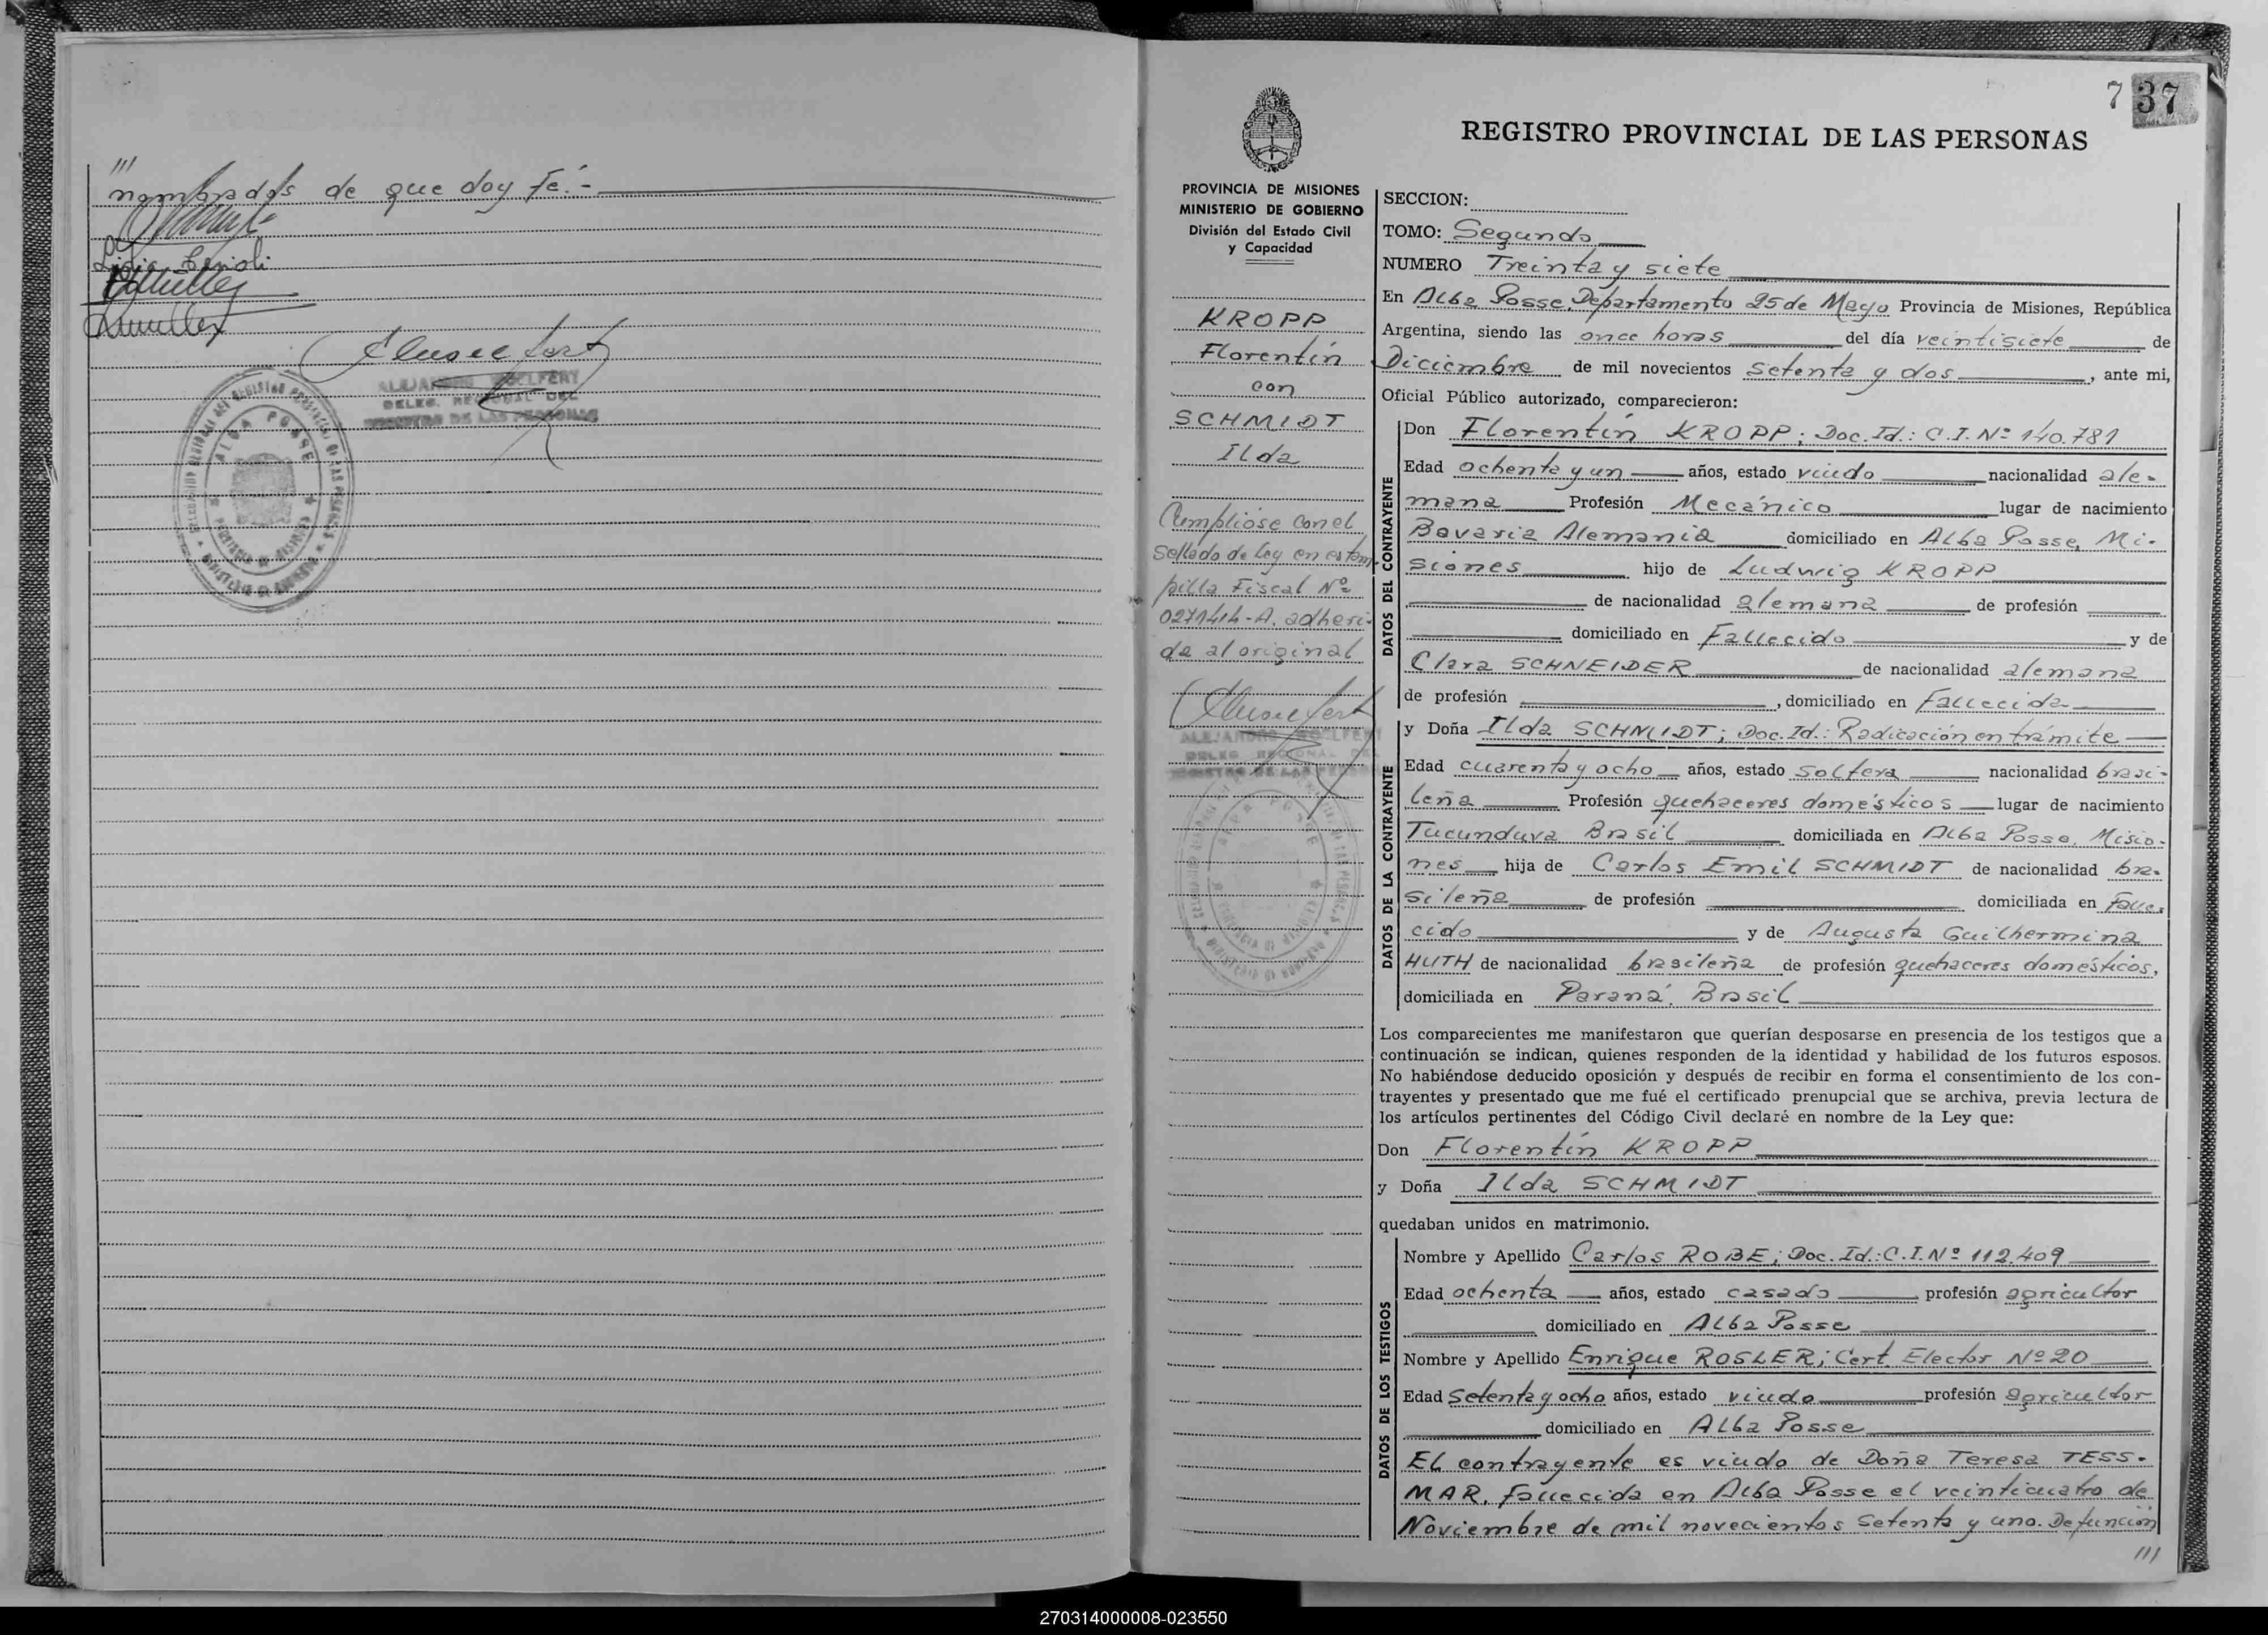 ///
nombrados de que doy fé.-
ALEJANDRO WOELFERT
DELEG. REGIONAL DEL
REGISTRO DE LAS PERSONAS
ALBA POSSE
7 37
REGISTRO PROVINCIAL DE LAS PERSONAS
PROVINCIA DE MISIONES
MINISTERIO DE GOBIERNO
División del Estado Civil
y Capacidad
KROPP
Florentín
con
SCHMIDT
Ilda
Cumplióse con el
Sellado de Ley en estam
pilla Fiscal Nº
0271414-A, adheri-
da al original
ALEJANDRO WOELFERT
DELEG. REGIONAL DEL
REGISTRO DE LAS PERSONAS
SECCION:
TOMO: Segundo
NUMERO Treinta y siete
En Alba Posse, Departamento 25 de Mayo Provincia de Misiones, República
Argentina, siendo las once horas del día veintisiete de
Diciembre de mil novecientos setenta y dos, ante mi,
Oficial Público autorizado, comparecieron:
DATOS DEL CONTRAYENTE
Don Florentín KROPP; Doc. Id.: C.I. Nº 140.781
Edad ochenta y un años, estado viudo nacionalidad ale-
mana Profesión Mecánico lugar de nacimiento
Bavaria Alemania domiciliado en Alba Posse, Mi-
siones hijo de Ludwig KROPP
de nacionalidad alemana de profesión
domiciliado en Fallecido y de
Clara SCHNEIDER de nacionalidad alemana
de profesión , domiciliado en Fallecida
DATOS DE LA CONTRAYENTE
y Doña Ilda SCHMIDT; Doc. Id.: Radicación en trámite
Edad cuarenta y ocho años, estado soltera nacionalidad brasi-
leña Profesión quehaceres domésticos lugar de nacimiento
Tucunduva Brasil domiciliada en Alba Posse, Misio-
nes hija de Carlos Emil SCHMIDT de nacionalidad bra-
sileña de profesión domiciliada en Falle-
cido y de Augusta Guilhermina
HUTH de nacionalidad brasileña de profesión quehaceres domésticos,
domiciliada en Paraná, Brasil
Los comparecientes me manifestaron que querían desposarse en presencia de los testigos que a
continuación se indican, quienes responden de la identidad y habilidad de los futuros esposos.
No habiéndose deducido oposición y después de recibir en forma el consentimiento de los con-
trayentes y presentado que me fué el certificado prenupcial que se archiva, previa lectura de
los artículos pertinentes del Código Civil declaré en nombre de la Ley que:
Don Florentín KROPP
y Doña Ilda SCHMIDT
quedaban unidos en matrimonio.
DATOS DE LOS TESTIGOS
Nombre y Apellido Carlos ROBE; Doc. Id.: C.I. Nº 112.409
Edad ochenta años, estado casado profesión agricultor
domiciliado en Alba Posse
Nombre y Apellido Enrique ROSLER; Cert. Elector Nº 20
Edad setenta y ocho años, estado viudo profesión agricultor
domiciliado en Alba Posse
El contrayente es viudo de Doña Teresa TESS-
MAR, fallecida en Alba Posse el veinticuatro de
Noviembre de mil novecientos setenta y uno. Defunción
///
270314000008-023550